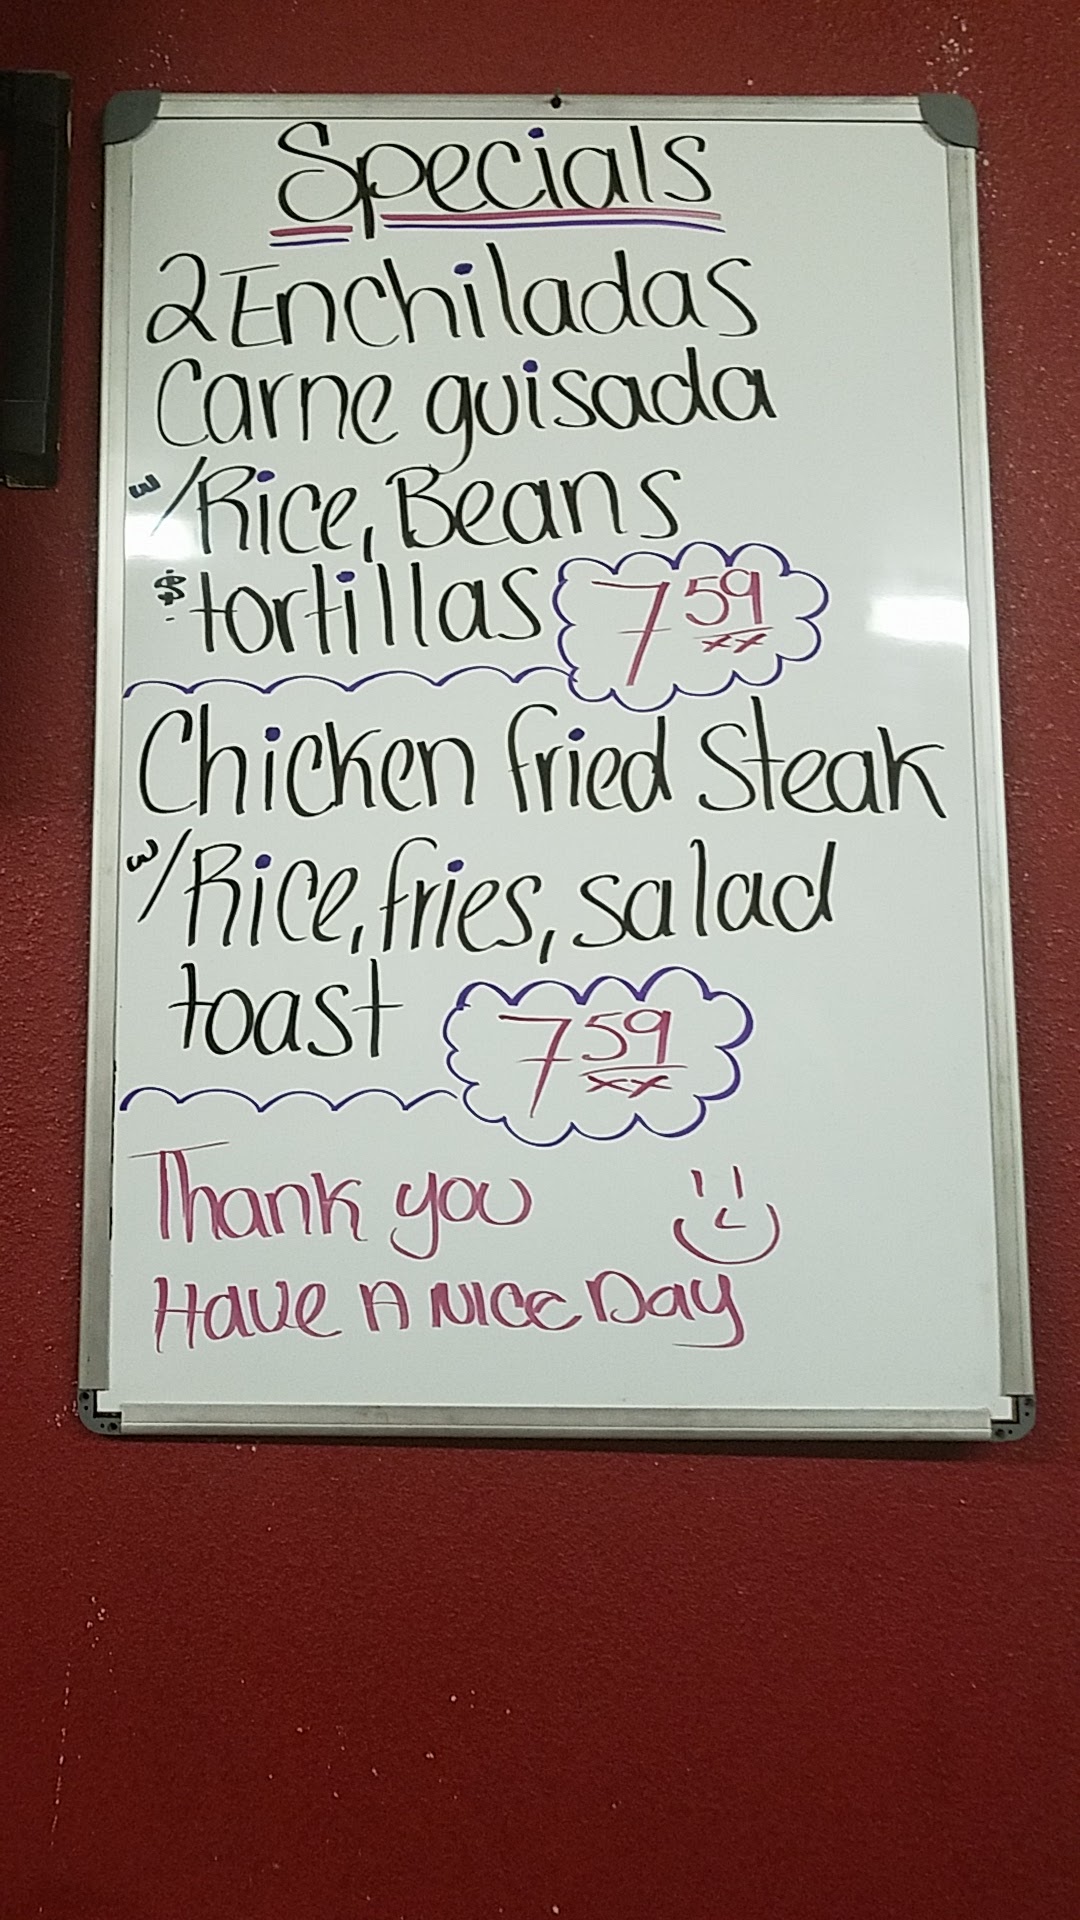 Specials
2 Enchiladas
Carne guisada
w/Rice, Beans
& tortillas 7 59 xx
Chicken fried Steak
w/Rice, fries, salad
toast 7 59 xx
Thank you
Have A Nice Day